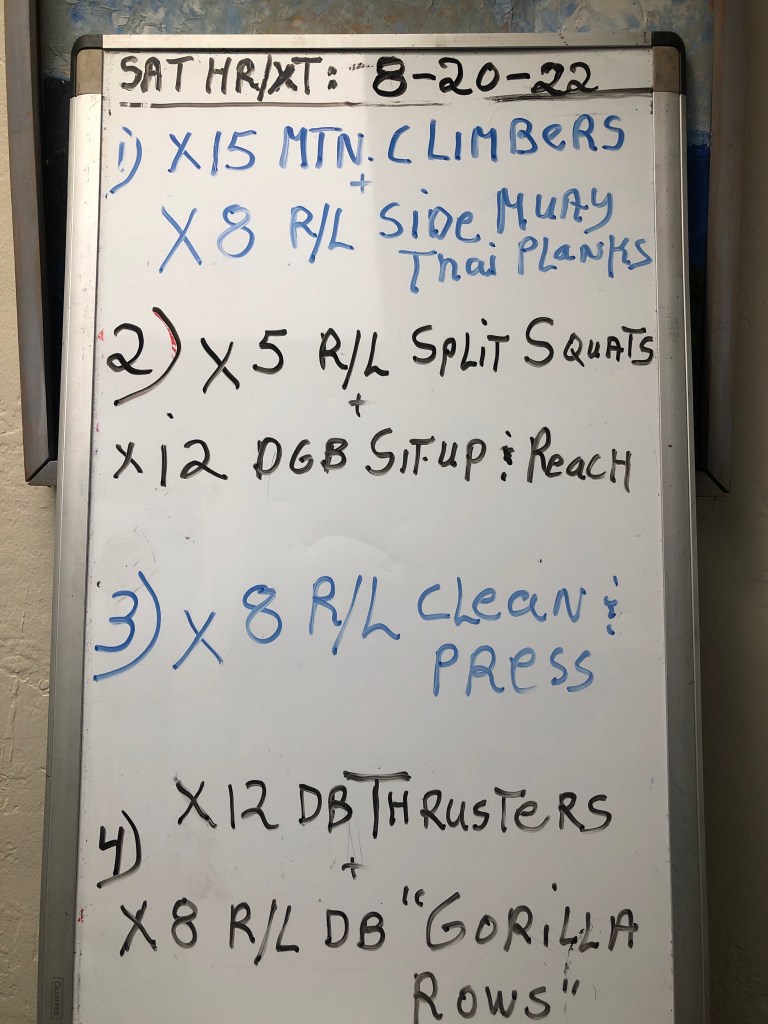 SAT HR/XT: 8-20-22
1) X15 MTN. CLIMBERS
+
X8 R/L SIDE MUAY
THAI PLANKS
2) X5 R/L SPLIT SQUATS
+
X12 DGB SIT-UP & REACH
3) X8 R/L CLEAN &
PRESS
X12 DB THRUSTERS
4)
+
X8 R/L DB "GORILLA
ROWS"
Quartet